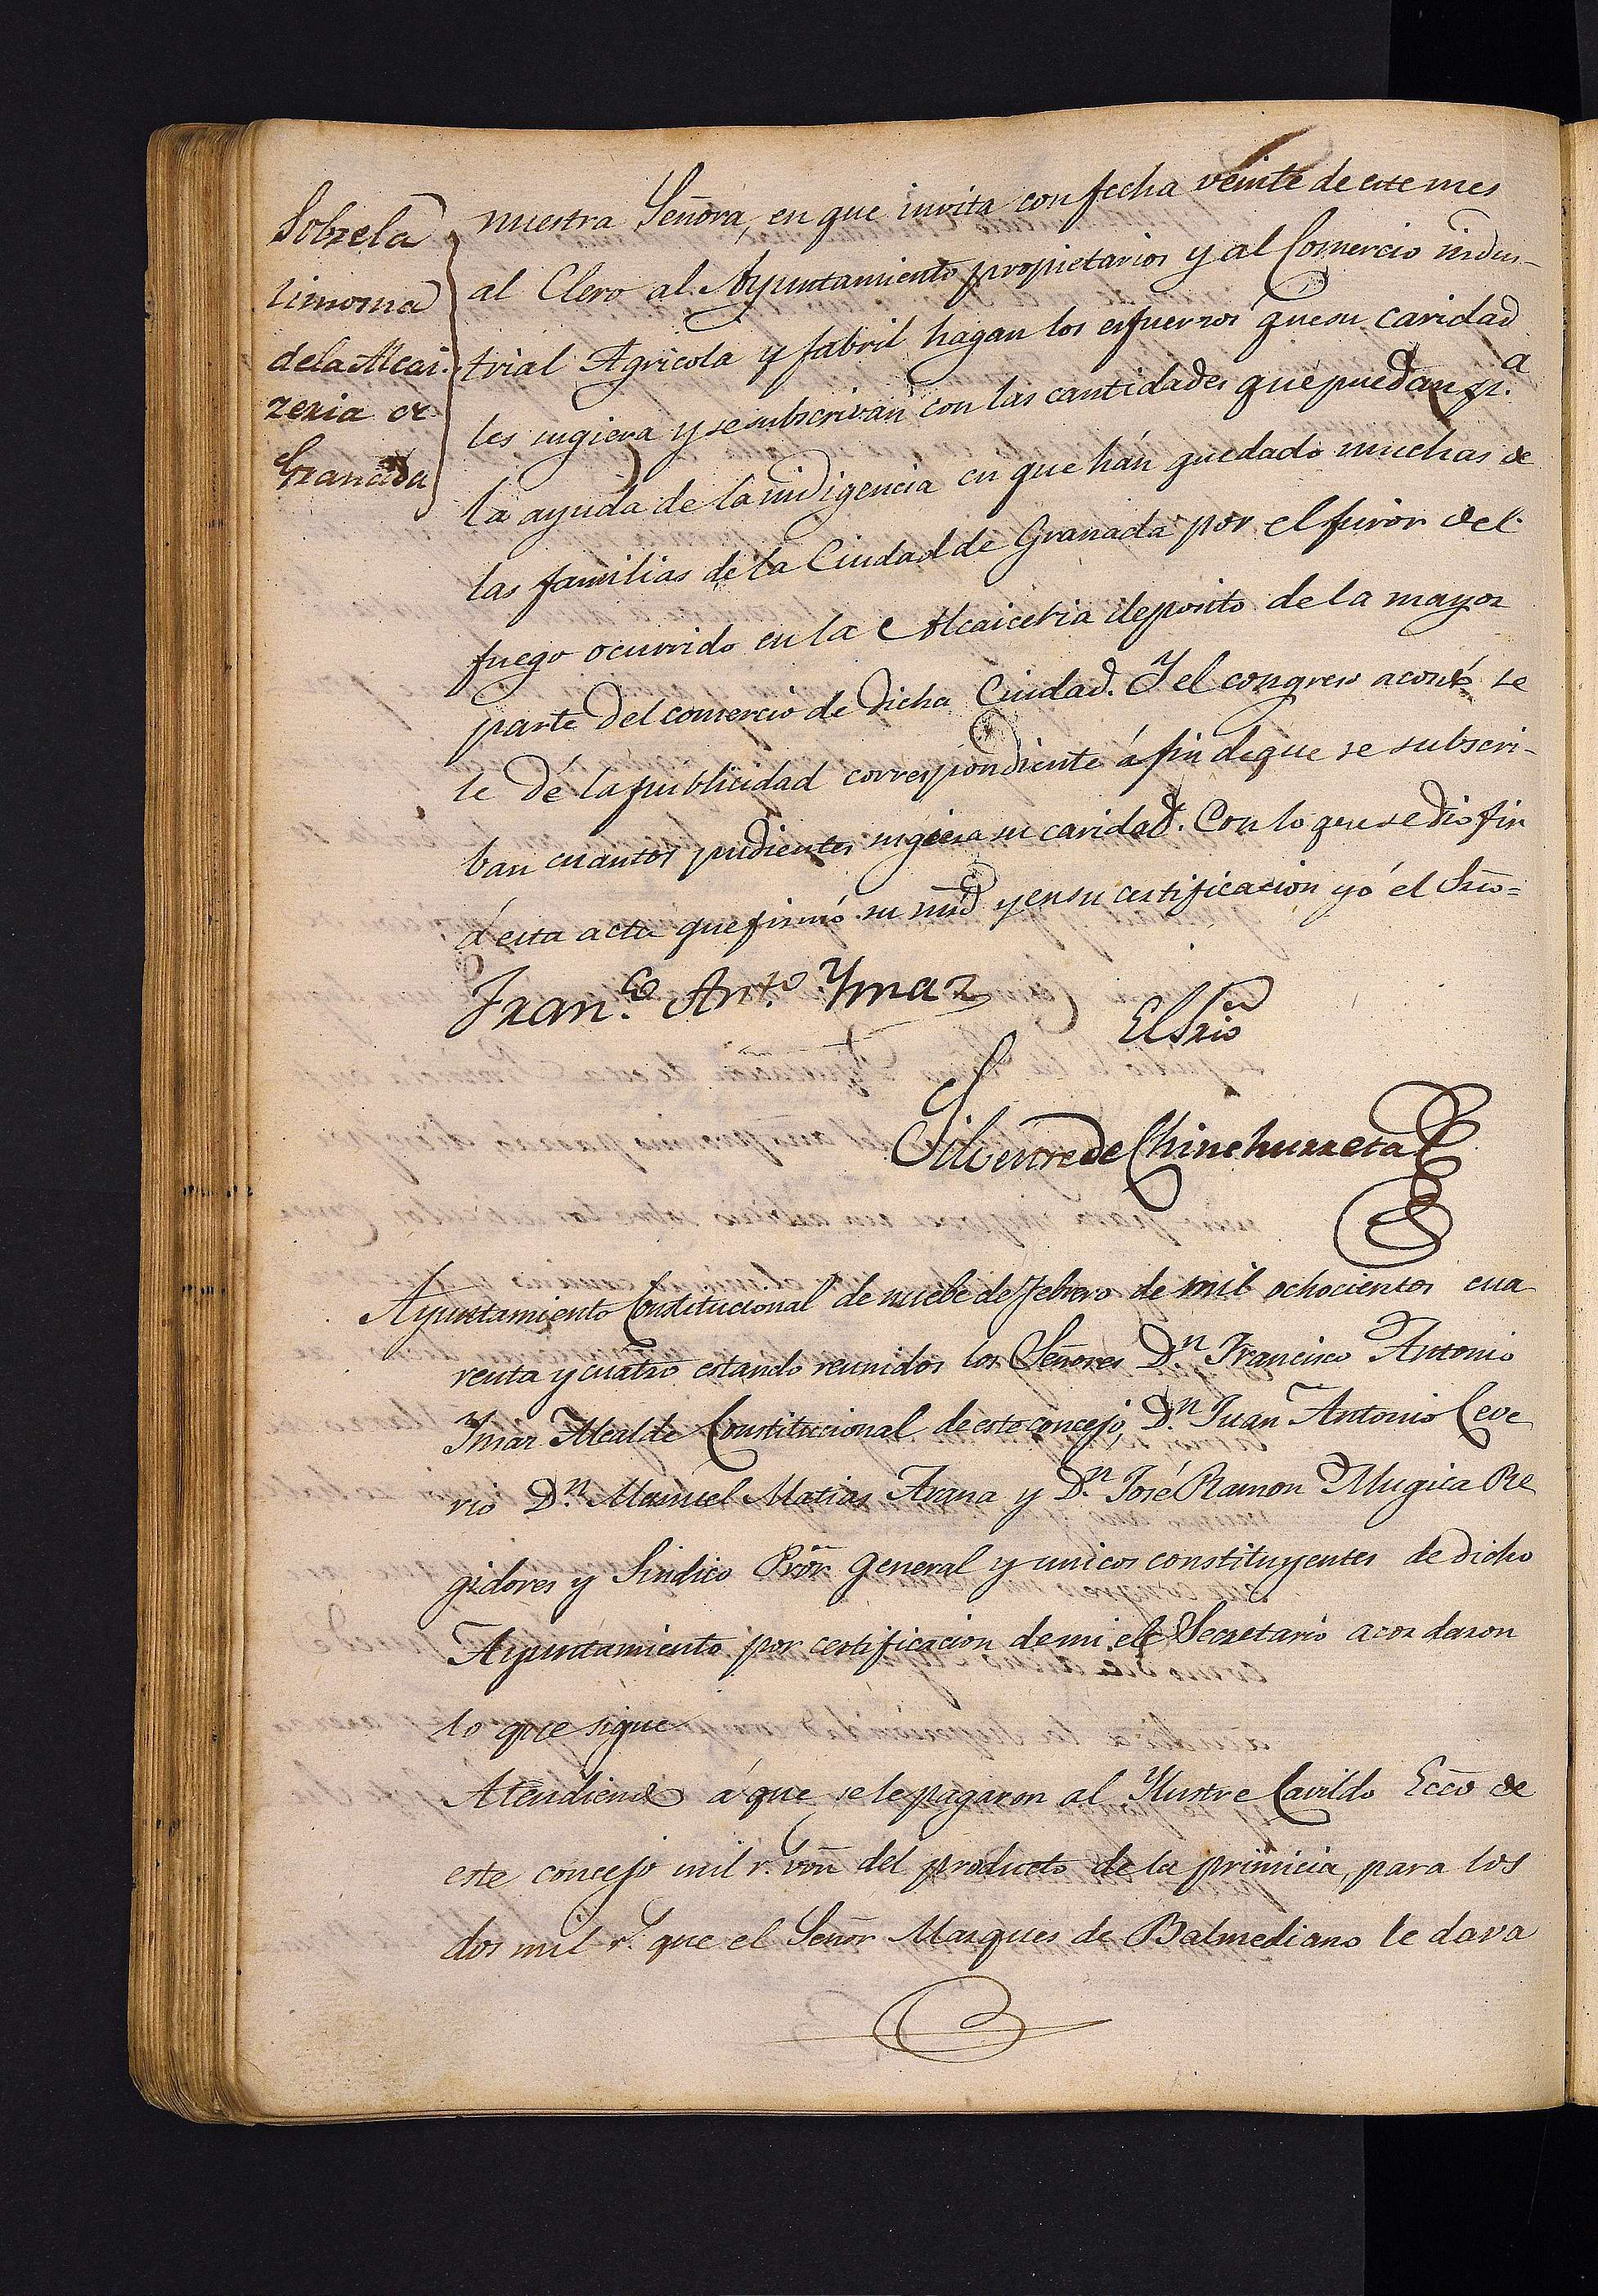 Sobre la
limosna
de la Alcai.
zeria de
Granada
nuestra Señora, en que invita con fecha veinte de este mes
al Clero al Ayuntamiento propietarios y al Comercio indus-
trial Agricola y fabril hagan los esfuerzos que su caridad
les sugiera y se subscrivan con las cantidades que puedan p.ª
la ayuda de la indigencia en que hán quedado muchas de
las familias de la Ciudad de Granada por el furor del
fuego ocurrido en la Alcaiceria deposito de la mayor
parte del comercio de dicha Ciudad. Y el congreso acordó se
le dé la publicidad correspondiente á fin de que se subscri-
ban cuantos pudientes sugiera su caridad. Con lo que se dio fin
á esta acta que firmó su mrd y en su certificacion yó el Srio=
Fran.co Ant.o Ymaz
El Srio
Silvestre de Chinchurreta
Ayuntamiento Constitucional de nuebe de Febrero de mil ochocientos cua
renta y cuatro estando reunidos los Señores D.n Francisco Antonio
Imaz Alcalde Constitucional de este concejo, D.n Juan Antonio Ceve
rio D.n Manuel Matias Arana y D.n José Ramon Mugica Re
gidores y Sindico Prór. general y unicos constituyentes de dicho
Ayuntamiento por certificacion de mi el Secretario acordaron
lo que sigue
Atendiendo á que se le pagaron al Ylustre Cavildo Ecco de
este concejo mil r.s von del producto de la primicia, para los
dos mil r.s que el Señor Marques de Balmediano le dava